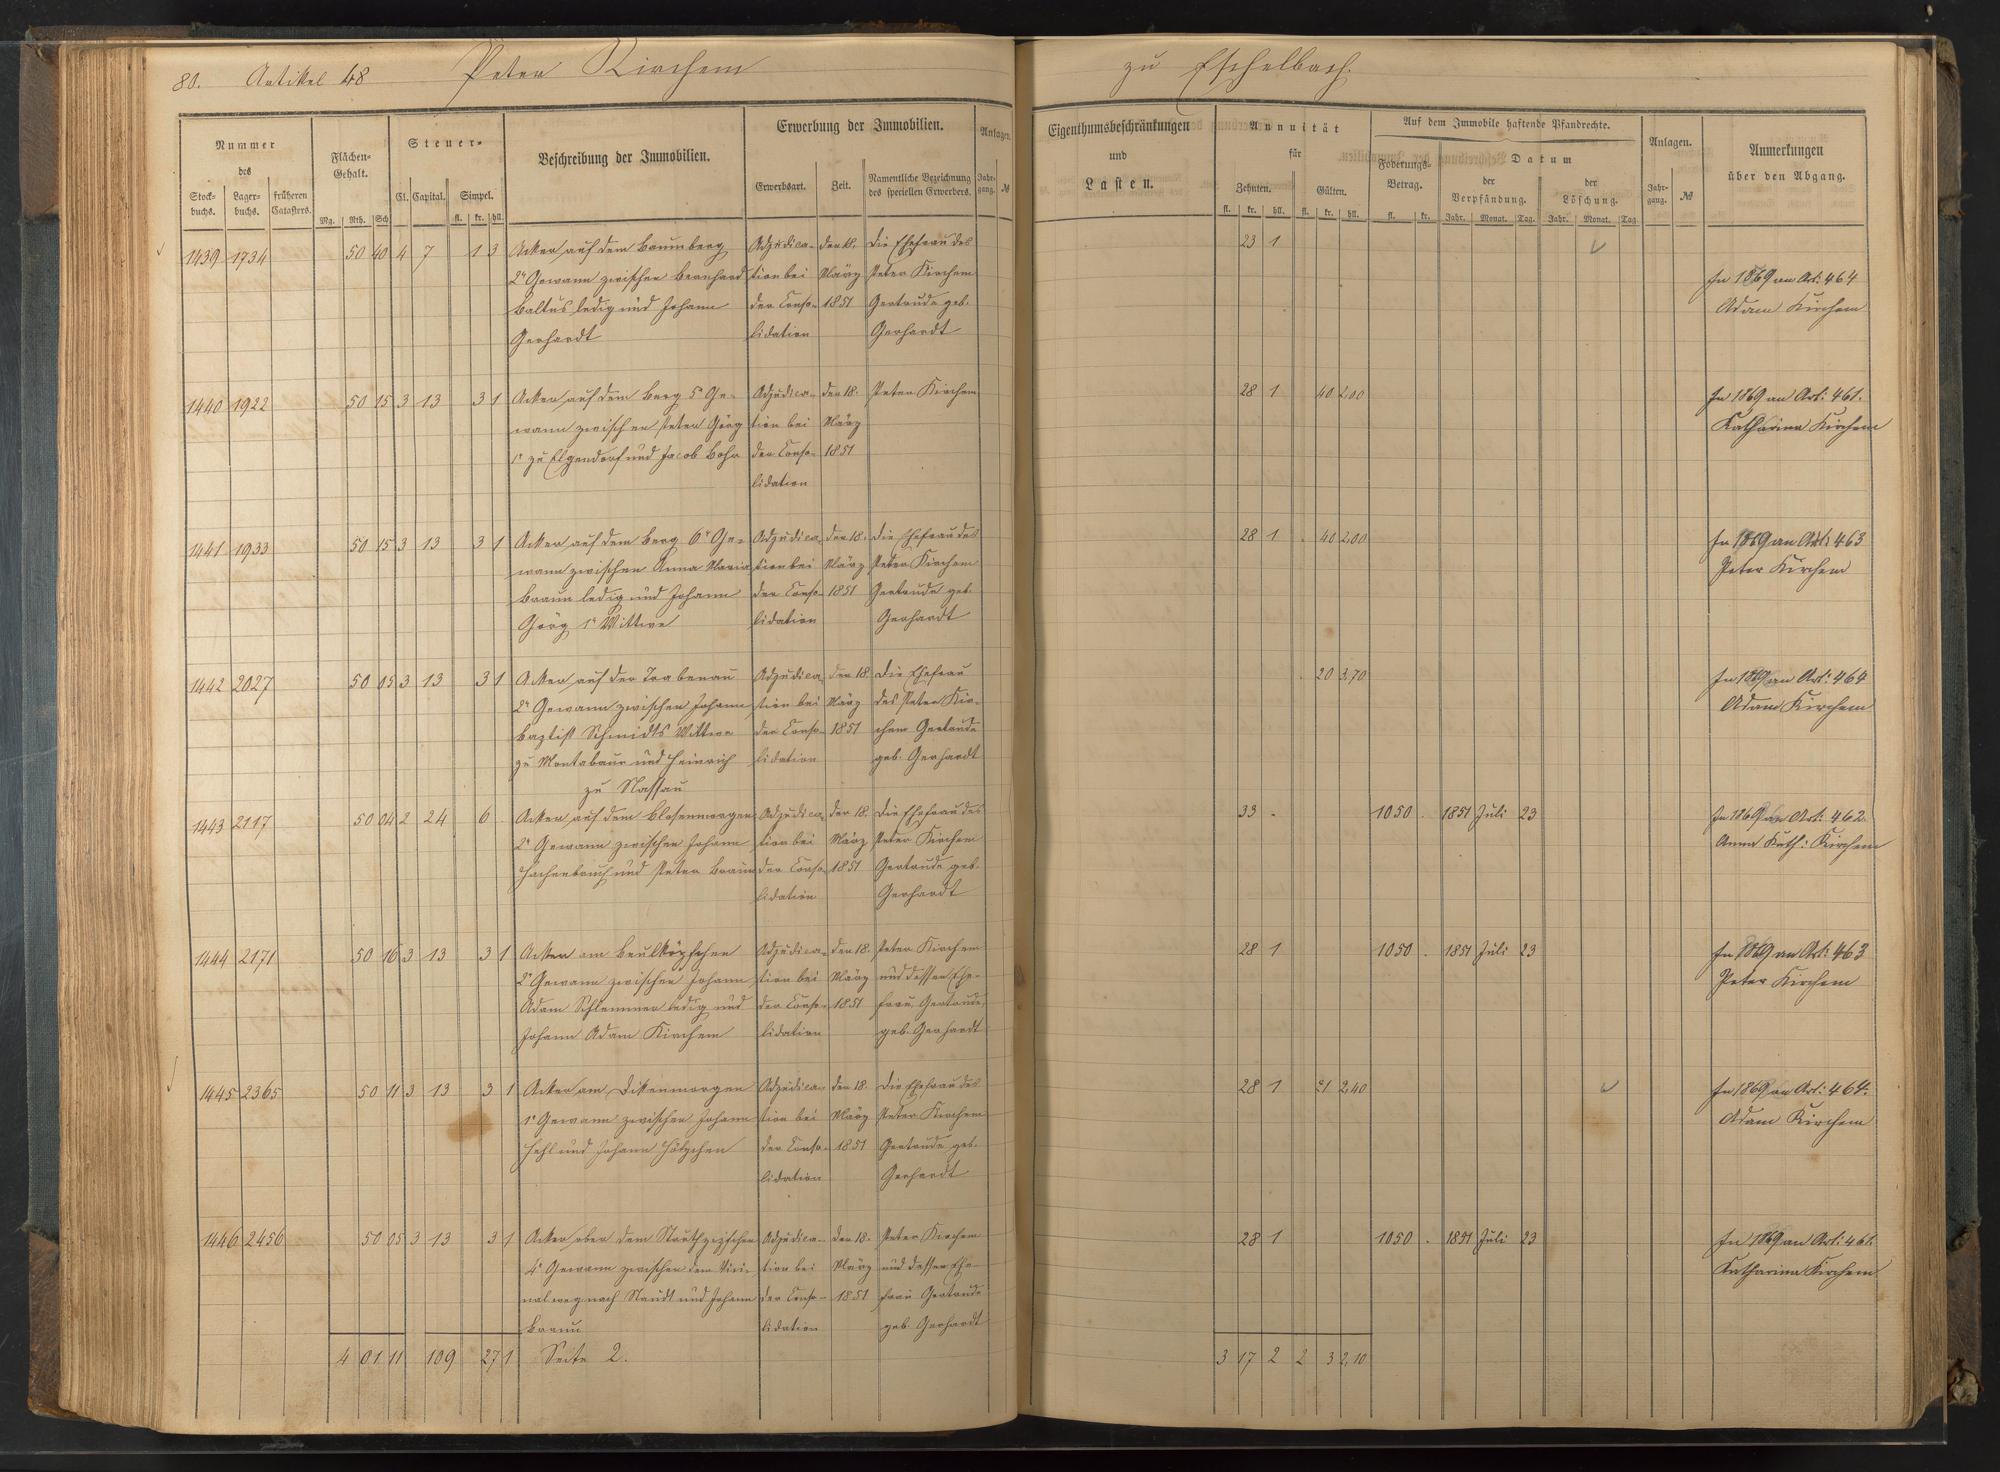 80. Artikel 48 Peter Kirchem zu Eschelbach.
Nummer des
Stockbuchs. Lagerbuchs. früheren Catasters.
Flächen-Gehalt.
Mg. Rth. Sch.
Steuer-
Cl. Capital. Simpel.
fl. kr. hll.
Beschreibung der Immobilien.
Erwerbung der Immobilien.
Erwerbsart. Zeit. Namentliche Bezeichnung des speciellen Erwerbers.
Anlagen.
Jahrgang. №
Eigenthumsbeschränkungen und Lasten.
Annuität für
Zehnten. Gülten.
fl. kr. hll. fl. kr. hll.
Auf dem Immobile haftende Pfandrechte.
Foderungs-Betrag. Datum
der Verpfändung. der Löschung.
fl. kr. Jahr. Monat. Tag. Jahr. Monat. Tag.
Anlagen.
Jahrgang. №
Anmerkungen über den Abgang.
1439 1734 50 40 4 7 1 3 Acker auf dem Baumberg Adjudica- den 18. Die Ehefrau des 23 1
2r Gewann zwischen Bernhard tion bei März Peter Kirchem In 1869 an Art. 464
Baltus ledig und Johann der Conso- 1851 Gertrude geb. Adam Kirchem
Gerhardt lidation Gerhardt
1440 1922 50 15 3 13 3 1 Acker auf dem Berg 5r Ge- Adjudica- den 18. Peter Kirchem 28 1 40 2,00 In 1869 an Art: 461.
wann zwischen Peter Görg tion bei März Katharina Kirchem
1r zu Elgendorf und Jacob Bohr der Conso- 1851
lidation
1441 1933 50 15 3 13 3 1 Acker auf dem Berg 6r Ge- Adjudica- den 18. Die Ehefrau des 28 1 . 40 2,00 In 1869 an Art: 463
wann zwischen Anna Maria tion bei März Peter Kirchem Peter Kirchem
Braun ledig und Johann der Conso- 1851 Gertrude geb.
Görg 1r Wittwe lidation Gerhardt
1442 2027 50 05 3 13 3 1 Acker auf der Trabenau Adjudica- den 18. Die Ehefrau . 20 3,70 In 1869 an Art: 464
2r Gewann zwischen Johann tion bei März des Peter Kir- Adam Kirchem
Baptist Schmidts Wittwe der Conso- 1851 chem Gertrude
zu Montabaur und Heinrich lidation geb. Gerhardt
zu Nassau
1443 2117 50 04 2 24 6 Acker auf dem Blosenmorgen Adjudica- den 18. Die Ehefrau des 33 . 1050 . 1851 Juli 23 In 1869 an Art: 462.
2r Gewann zwischen Johann tion bei März Peter Kirchem Anna Kath: Kirchem
Hachenbruch und Peter Braun der Conso- 1851 Gertrude geb.
lidation Gerhardt
1444 2171 50 16 3 13 3 1 Acker am Beulköpfchen Adjudica- den 18. Peter Kirchem 28 1 1050 . 1851 Juli 23 In 1869 an Art: 463
2r Gewann zwischen Johann tion bei März und dessen Ehe- Peter Kirchem
Adam Schlemmer ledig und der Conso- 1851 frau, Gertrude,
Johann Adam Kirchem lidation geb. Gerhardt
1445 2365 50 11 3 13 3 1 Acker am Dikenmorgen Adjudica- den 18. Die Ehefrau des 28 1 21 2,40 In 1869 an Art: 464.
1r Gewann zwischen Johann tion bei März Peter Kirchem Adam Kirchem
Hehl und Johann Hölzchen der Conso- 1851 Gertrude geb.
lidation Gerhardt
1446 2456 50 05 3 13 3 1 Acker ober dem Adjudica- den 18. Peter Kirchem 28 1 1050 . 1851 Juli 23 In 1869 an Art: 461.
4r Gewann zwischen dem Vici- tion bei März und dessen Ehe- Katharina Kirchem
nalweg nach Staudt und Johann der Conso- 1851 frau Gertrude
Braun lidation geb. Gerhardt
4 01 11 109 27 1 Seite 2. 3 17 2 2 3 2,10